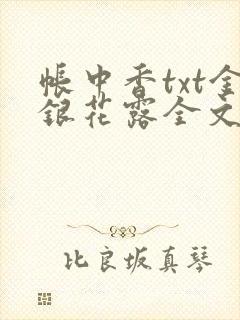 帳中香txt金
銀花露全文
比良坂真琴